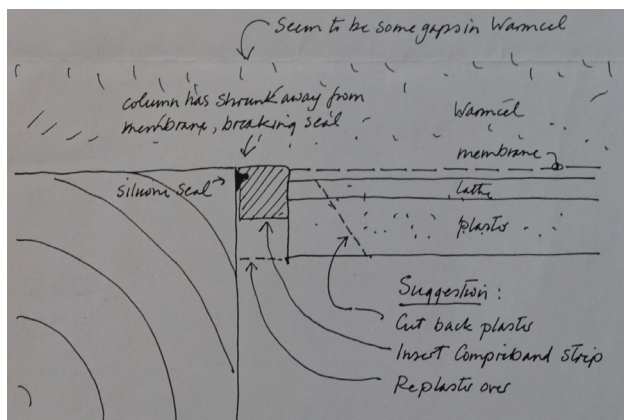 Seem to be some gaps in Warmcel
column has shrunk away from
membrane, breaking seal
Warmcel
membrane
silicone seal
lathe
plaster
Suggestion:
Cut back plaster
Insert Compriband strip
Replaster over